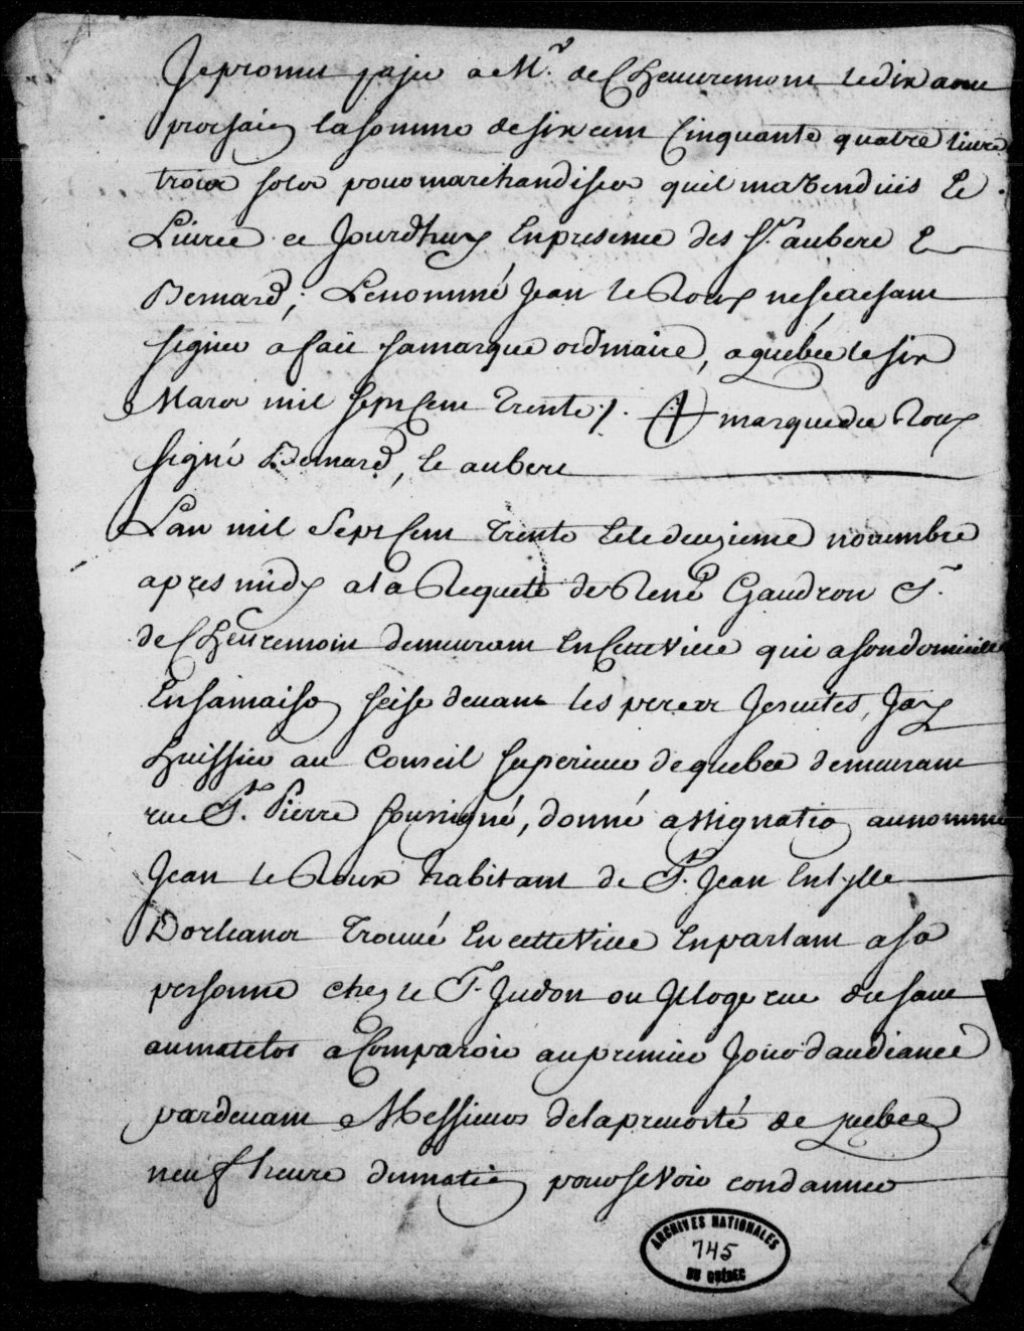 Je promet paÿer a Mr. de Cheuuremont le dix aout
prochain la somme de six cent Cinquante quatre liure
trois sols pour marchandises quil ma Vendües Et
Liurée ce Jourdhuy En presence des Srs. aubere Et
Bernard, Lenommé Jean le Roux ne scachant
signer a fait sa marque ordinaire, a quebec le six
Mars mil sept Cent Trente ./. marque du Roux
signé Bernard, et aubere
Lan mil Sept Cent Trente Et le deuzieme nouembre
apres midy a la Requete de René Gaudron Sr.
de Cheuremont demeurant En Cette Ville qui a son domicille
En sa maison scise deuant les peres Jesuites, Jay
huissier au Conseil superieur de quebec demeurant
rue St. Pierre soussigné, donné assignation au nommé
Jean le Roux habitant de St. Jean En lylle
Dorleans Trouué En cette Ville En parlant a sa
personne chez le Sr. Judon ou Jl loge rue du saut
au matelot a Comparoir au premier Jour daudiance
pardeuant Messieurs de la preuosté de quebec
neuf heure du matin pour se Voir condanner
ARCHIVES NATIONALES
745
DU QUÉBEC